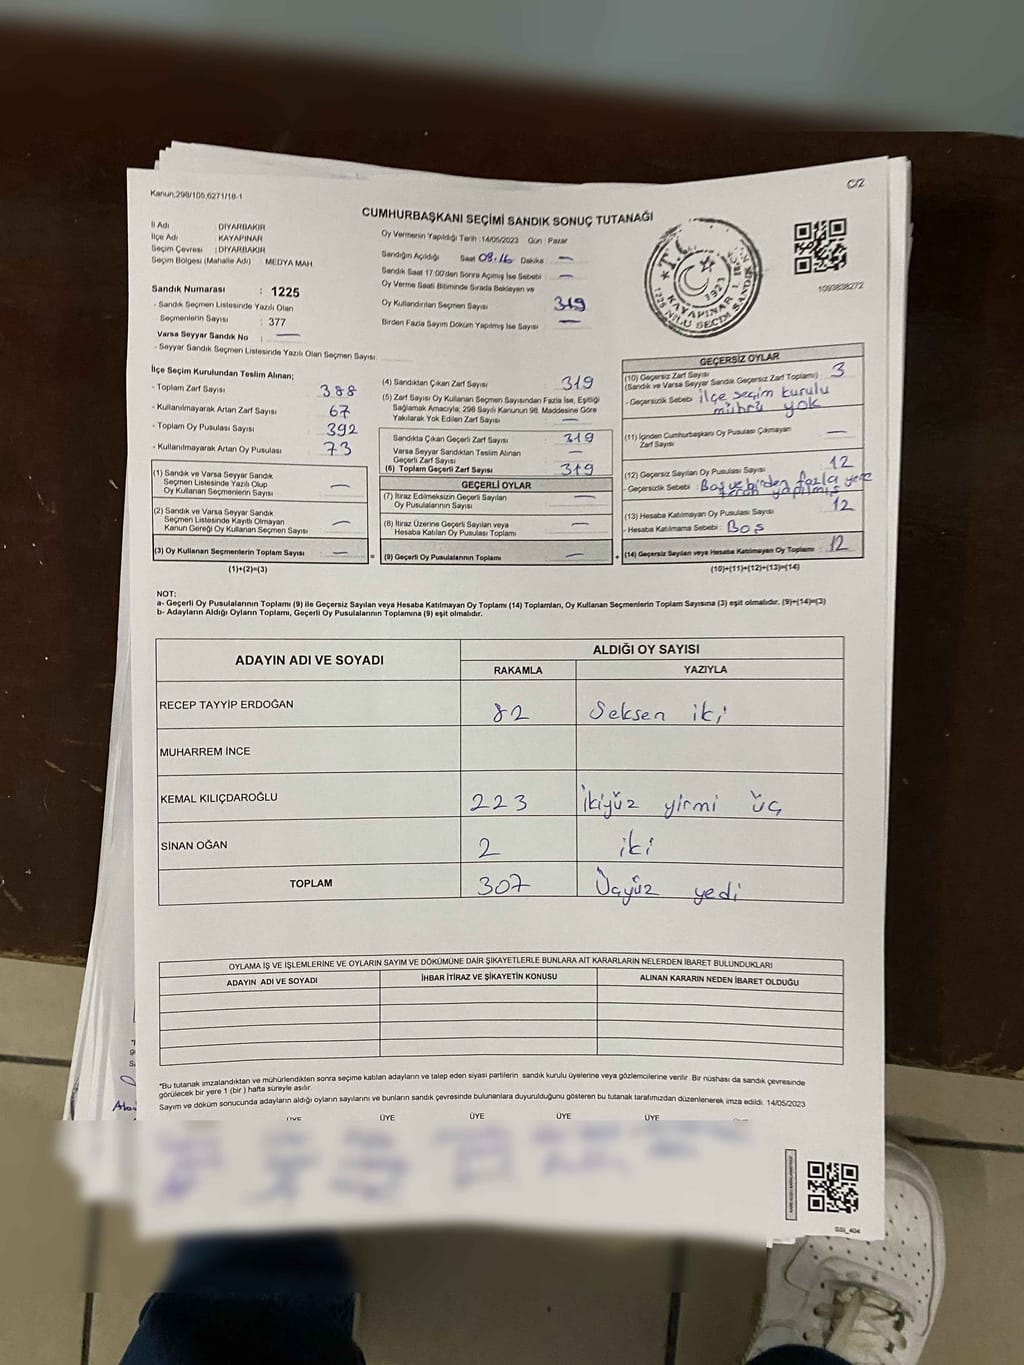 C/2
Kanun,298/105,6271/18-1
CUMHURBAŞKANI SEÇİMİ SANDIK SONUÇ TUTANAĞI
İl Adı : DİYARBAKIR
İlçe Adı : KAYAPINAR
Seçim Çevresi : DİYARBAKIR
Seçim Bölgesi (Mahalle Adı) : MEDYA MAH
Sandık Numarası : 1225
- Sandık Seçmen Listesinde Yazılı Olan
Seçmenlerin Sayısı : 377
Varsa Seyyar Sandık No —
- Seyyar Sandık Seçmen Listesinde Yazılı Olan Seçmen Sayısı:
Oy Vermenin Yapıldığı Tarih :14/05/2023 Gün : Pazar
Sandığın Açıldığı Saat 08.16 Dakika —
Sandık Saat 17:00'den Sonra Açımış İse Sebebi —
Oy Verme Saati Bitiminde Sırada Bekleyen ve
Oy Kullandırılan Seçmen Sayısı 319
Birden Fazla Sayım Döküm Yapılmış İse Sayısı —
T.C.
KAYAPINAR
1225 NOLU SEÇİM SANDIK
1921
1093838272
İlçe Seçim Kurulundan Teslim Alınan;
- Toplam Zarf Sayısı 388
- Kullanılmayarak Artan Zarf Sayısı 67
- Toplam Oy Pusulası Sayısı 392
- Kullanılmayarak Artan Oy Pusulası 73
(1) Sandık ve Varsa Seyyar Sandık
Seçmen Listesinde Yazılı Olup
Oy Kullanan Seçmenlerin Sayısı —
(2) Sandık ve Varsa Seyyar Sandık
Seçmen Listesinde Kayıtlı Olmayan
Kanun Gereği Oy Kullanan Seçmen Sayısı —
(3) Oy Kullanan Seçmenlerin Toplam Sayısı — =
(1)+(2)=(3)
(4) Sandıktan Çıkan Zarf Sayısı 319
(5) Zarf Sayısı Oy Kullanan Seçmen Sayısından Fazla İse, Eşitliği
Sağlamak Amacıyla; 298 Sayılı Kanunun 98. Maddesine Göre
Yakılarak Yok Edilen Zarf Sayısı —
Sandıkta Çıkan Geçerli Zarf Sayısı 319
Varsa Seyyar Sandıktan Teslim Alınan
Geçerli Zarf Sayısı —
(6) Toplam Geçerli Zarf Sayısı 319
GEÇERLİ OYLAR
(7) İtiraz Edilmeksizin Geçerli Sayılan
Oy Pusulası Sayısı —
(8) İtiraz Üzerine Geçerli Sayılan veya
Hesaba Katılan Oy Pusulaları Toplamı —
(9) Geçerli Oy Pusulalarının Toplamı — +
GEÇERSİZ OYLAR
(10) Geçersiz Zarf Sayısı
(Sandık ve Varsa Seyyar Sandık Geçersiz Zarf Toplamı) : 3
- Geçersizlik Sebebi : ilçe seçim kurulu
mührü yok
(11) İçinden Cumhurbaşkanı Oy Pusulası Çıkmayan
Zarf Sayısı —
(12) Geçersiz Sayılan Oy Pusulası Sayısı 12
- Geçersizlik Sebebi : Boş ve birden fazla yere
yapılmış
(13) Hesaba Katılmayan Oy Pusulası Sayısı 12
- Hesaba Katılmama Sebebi : Boş
(14) Geçersiz Sayılan veya Hesaba Katılmayan Oy Toplamı : 12
(10)+(11)+(12)+(13)=(14)
NOT:
a- Geçerli Oy Pusulalarının Toplamı (9) ile Geçersiz Sayılan veya Hesaba Katılmayan Oy Toplamı (14) Toplamları, Oy Kullanan Seçmenlerin Toplam Sayısına (3) eşit olmalıdır. (9)+(14)=(3)
b- Adayların Aldığı Oyların Toplamı, Geçerli Oy Pusulalarının Toplamına (9) eşit olmalıdır.
ADAYIN ADI VE SOYADI
ALDIĞI OY SAYISI
RAKAMLA YAZIYLA
RECEP TAYYİP ERDOĞAN 82 Seksen iki
MUHARREM İNCE
KEMAL KILIÇDAROĞLU 223 İkiyüz yirmi üç
SİNAN OĞAN 2 iki
TOPLAM 307 Üçyüz yedi
OYLAMA İŞ VE İŞLEMLERİNE VE OYLARIN SAYIM VE DÖKÜMÜNE DAİR ŞİKAYETLERLE BUNLARA AİT KARARLARIN NELERDEN İBARET BULUNDUKLARI
ADAYIN ADI VE SOYADI İHBAR İTİRAZ VE ŞİKAYETİN KONUSU ALINAN KARARIN NEDEN İBARET OLDUĞU
*Bu tutanak imzalandıktan ve mühürlendikten sonra seçime katılan adayların ve talep eden siyasi partilerin sandık kurulu üyelerine veya gözlemcilerine verilir. Bir nüshası da sandık çevresinde
görülecek bir yere 1 (bir ) hafta süreyle asılır.
Sayım ve döküm sonucunda adayların aldığı oyların sayılarını ve bunların sandık çevresinde bulunanlara duyurulduğunu gösteren bu tutanak tarafımızdan düzenlenerek imza edildi. 14/05/2023
ÜYE ÜYE ÜYE ÜYE ÜYE
SSI_404